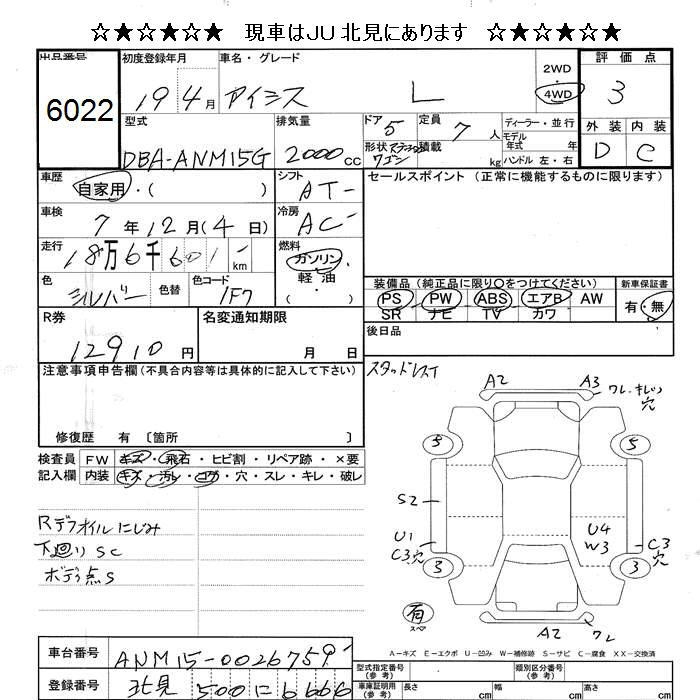 ☆★☆★☆★ 現車はJU北見にあります ☆★☆★☆★
出品番号 初度登録年月 車名・グレード 2WD 評価点
6022 19 4月 アイシス L 4WD 3
型式 排気量 ドア 5 定員 7人 ディーラー・並行 外装 内装
DBA-ANM15G 2000cc 形状 ステーションワゴン 積載 kg モデル年式 年 ハンドル 左・右 D C
車歴 自家用・( ) シフト AT セールスポイント (正常に機能するものに限ります)
車検 7年12月(4日) 冷房 AC
走行 18万6千601km 燃料 ガソリン・軽油・
色 シルバー 色替 色コード 1F7 装備品 (純正品に限り○をつけてください) 新車保証書
PS PW ABS エアB AW 有・無
SR ナビ TV カワ
R券 12910円 名変通知期限 月 日 後日品
注意事項申告欄(不具合内容等は具体的に記入して下さい) スタッドレス付
修復歴 有 〔箇所 〕
検査員 FW キズ・飛石・ヒビ割・リペア跡・×要
記入欄 内装 キズ・汚レ・コゲ・穴・スレ・キレ・破レ
A2 A3 ワレ・キレツ 穴
5 5
S2
Rデフオイルにじみ
下廻りSC
ボデー点S
U1 U4
C3穴 W3 C3穴
3 3
有 スペア
A2 ワレ
A-キズ E-エクボ U-凹み W-補修跡 S-サビ C-腐食 XX-交換済
車台番号 ANM15-0026759
型式指定番号 (参考) 類別区分番号 (参考)
登録番号 北見 500 に 6666
車庫証明用 (参考) 長さ cm 幅 cm 高さ cm